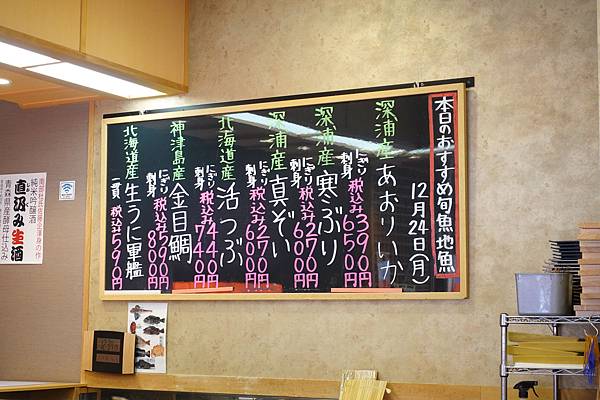 本日のおすすめ旬魚地魚
12月24日(月)
深浦産 あおりいか
にぎり 税込み390円
刺身 税込み650円
深浦産 寒ぶり
にぎり 税込み270円
刺身 税込み600円
深浦産 真ぞい
にぎり 税込み270円
刺身 税込み600円
北海道産 活つぶ
にぎり 税込み440円
刺身 税込み740円
神津島産 金目鯛
にぎり 税込み590円
刺身 税込み800円
北海道産 生うに軍艦
一貫 税込み590円
純米吟醸酒
直汲み生酒
青森県産酵母仕込み